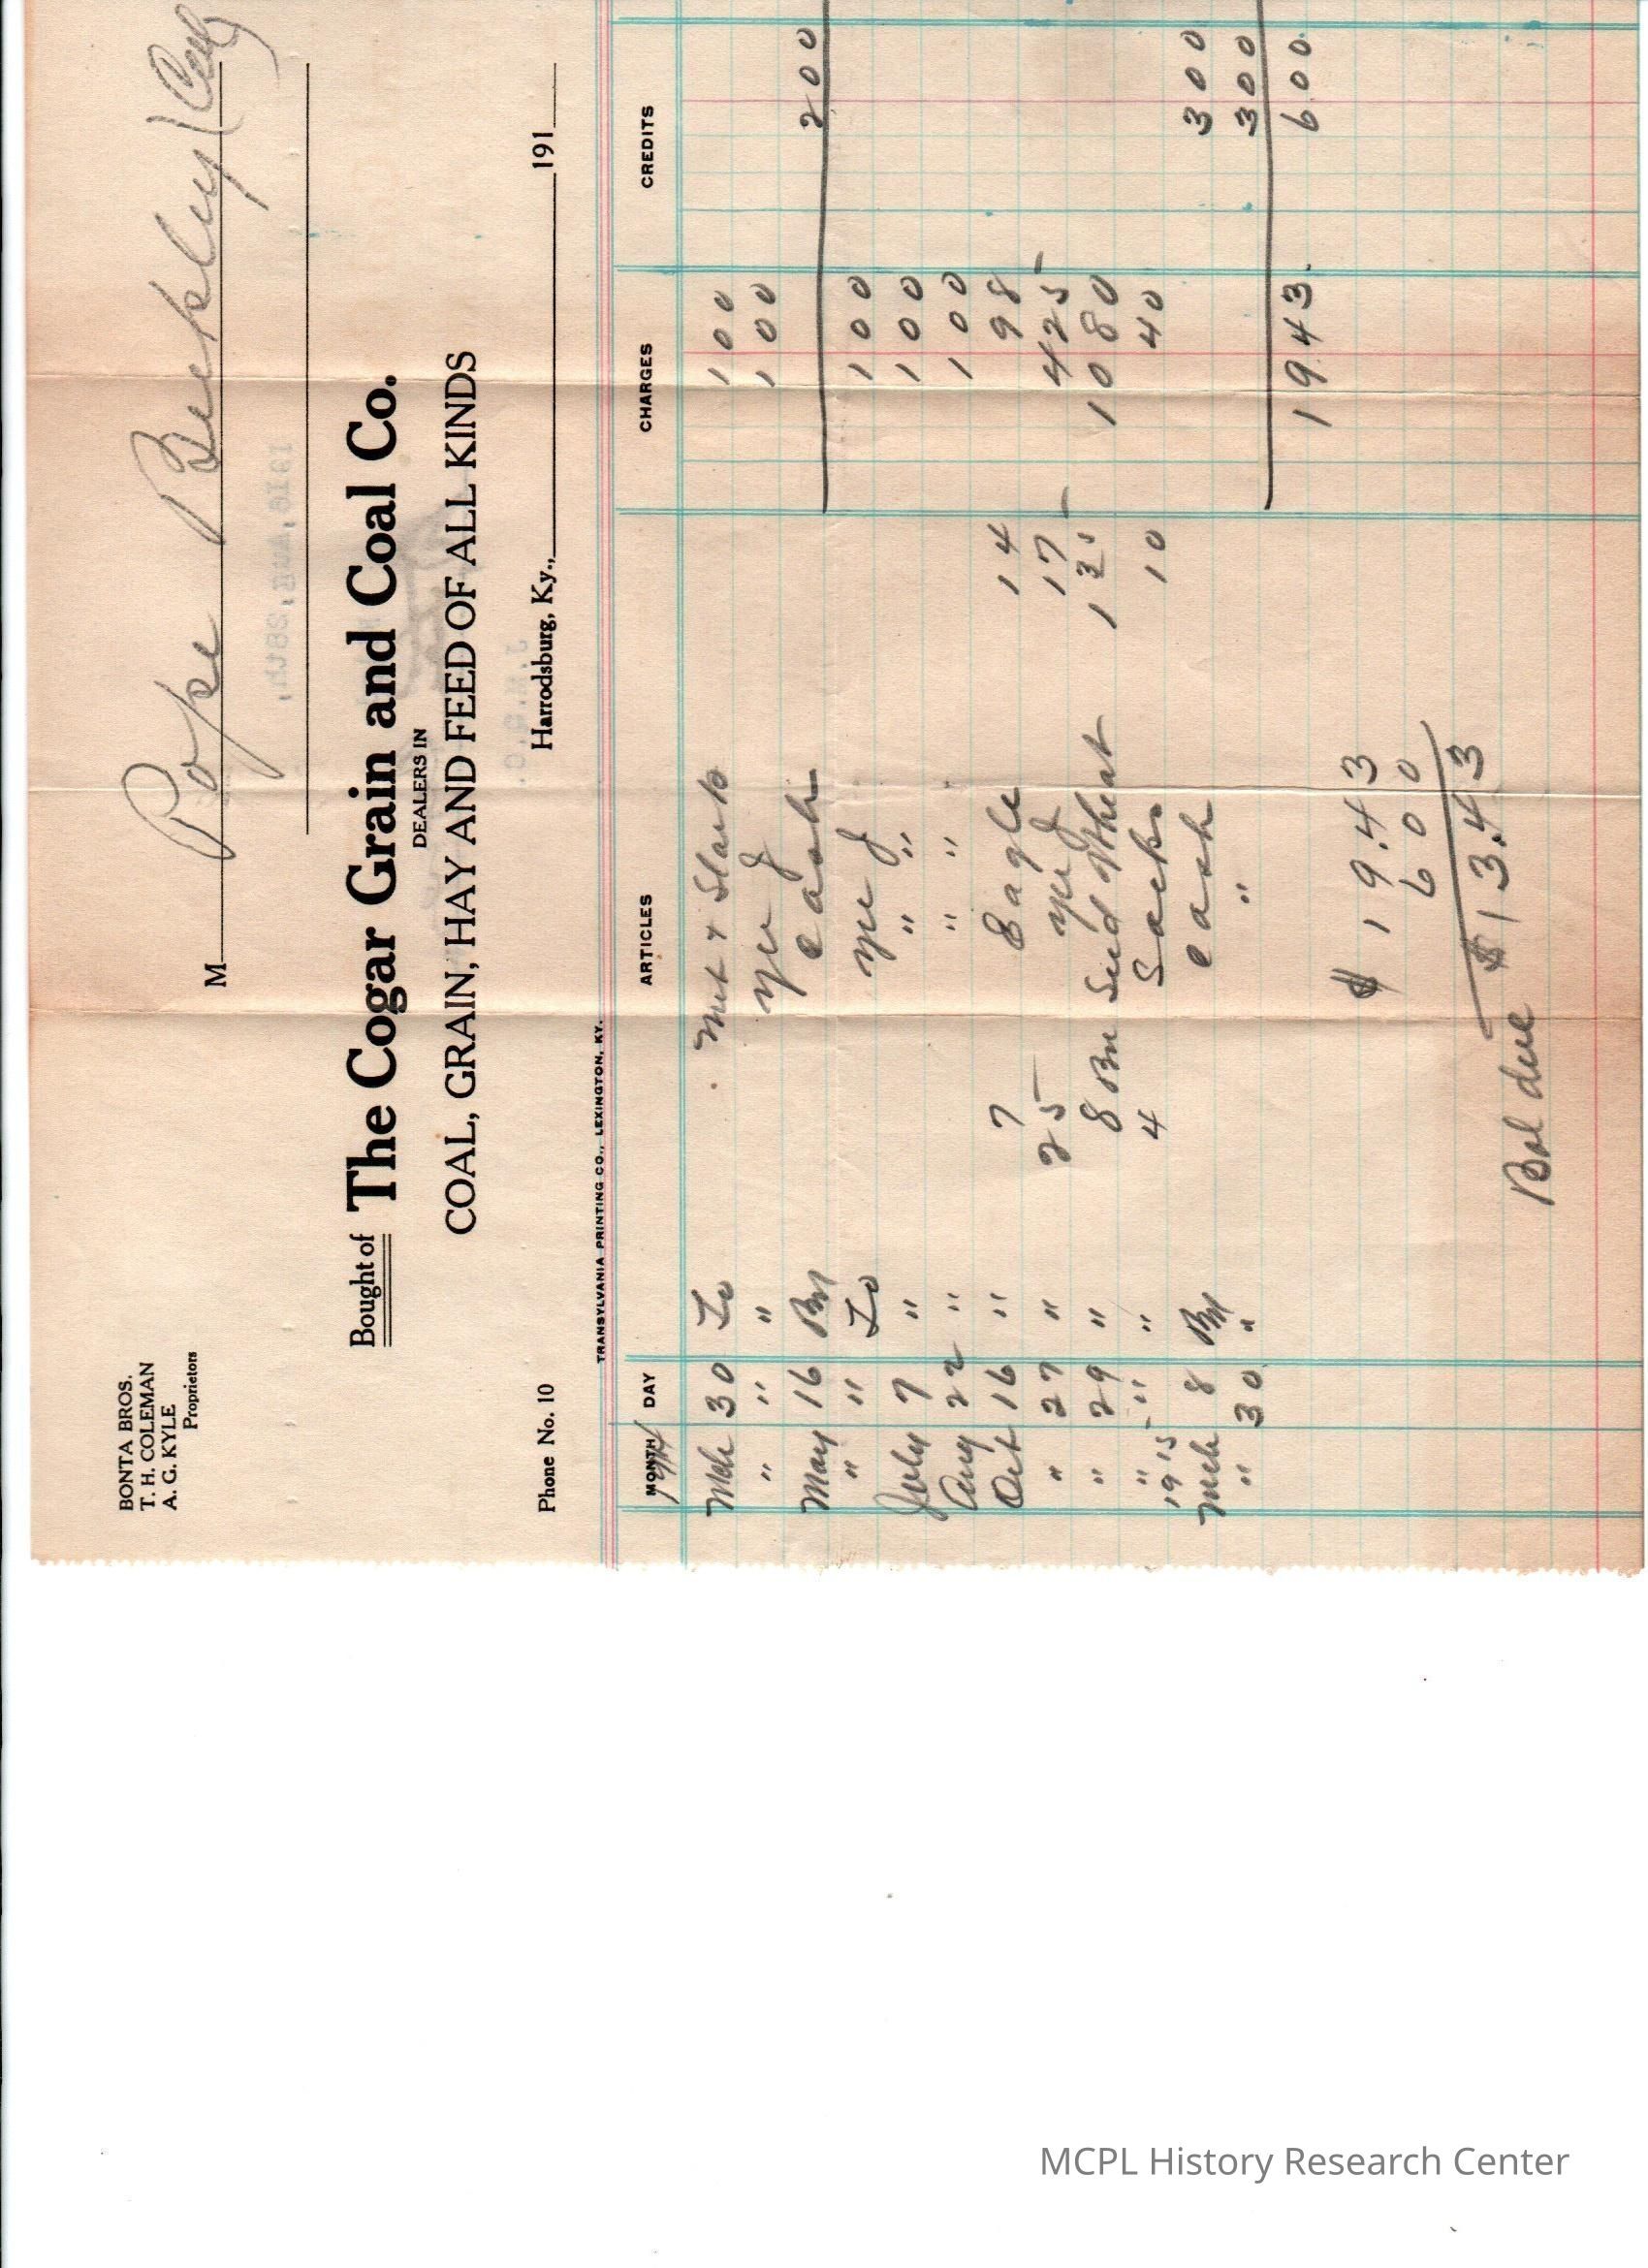 BONTA BROS.
T. H. COLEMAN
A. G. KYLE
Proprietors
M Pope Bickley (Col)
Bought of The Cogar Grain and Coal Co.
DEALERS IN
COAL, GRAIN, HAY AND FEED OF ALL KINDS
Phone No. 10 Harrodsburg, Ky., 191
TRANSYLVANIA PRINTING CO., LEXINGTON, KY.
MONTH DAY ARTICLES CHARGES CREDITS
1914
Mch 30 To & 1 00
" " " 1 00
May 16 By cash 2 00
" " To 1 00
July 7 " " " 1 00
Aug 22 " " " 1 00
Oct 16 " 7 Eagle 14 98
" 27 " 25 17 4 25
" 29 " 8 Bu Seed Wheat 1 35 10 80
" " " 4 Sacks 10 40
1915
Mch 8 By cash 3 00
" 30 " " 3 00
19 43 6 00
$ 19.43
6 00
Bal due $ 13.43
MCPL History Research Center